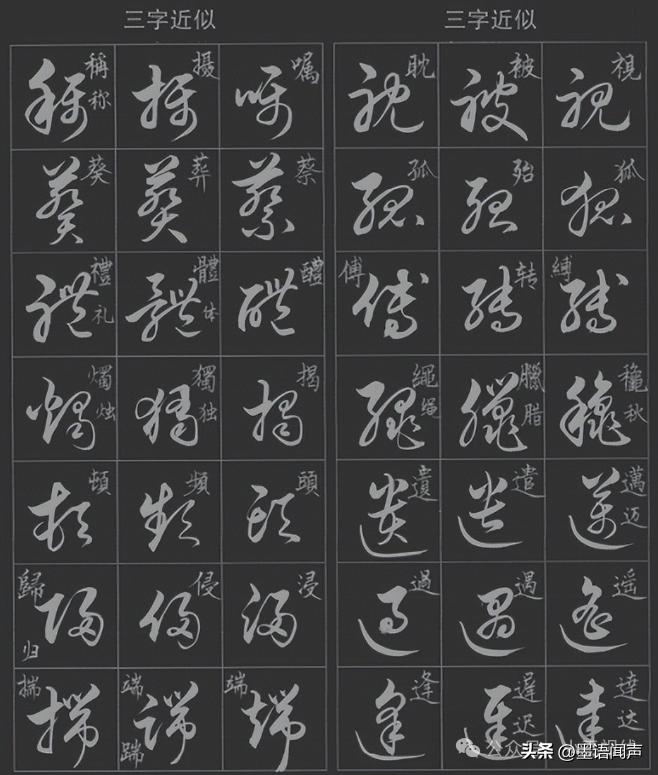 三字近似 三字近似
稱称 摄 嘱 眈 被 視
葵 葬 蔡 孤 殆 狐
禮礼 體体 醴 傅 转 縛
燭烛 獨独 揭 繩绳 臘腊 穐秋
頓 頻 頭 遺 遣 邁迈
歸归 侵 浸 過 遇 遥
揣 端踹 端 逢 遲迟 達达
头条 @墨语闻声